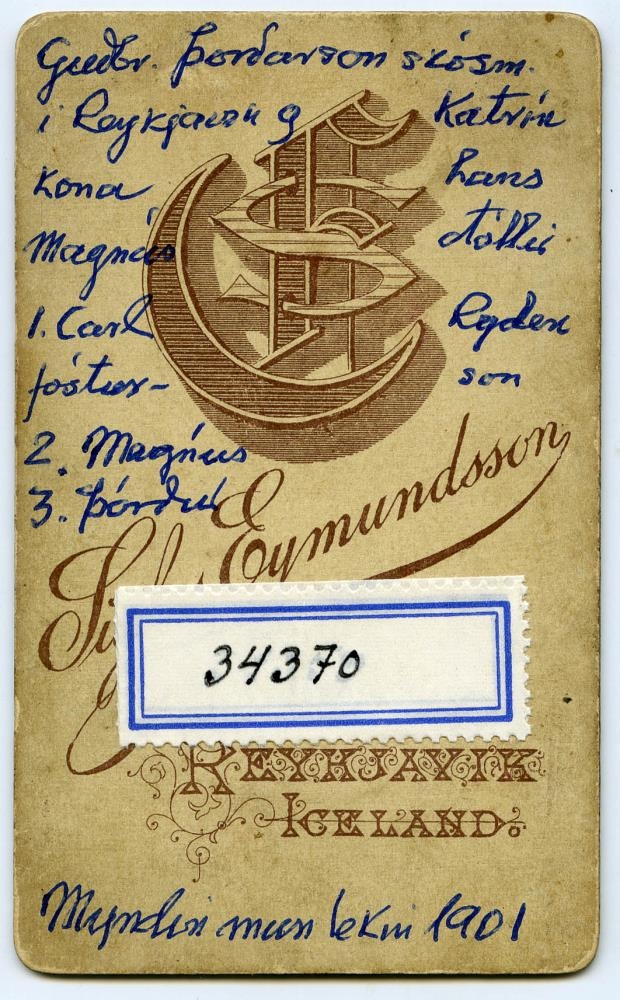 Guðbr. Þórðarson skósm.
í Reykjavík og Katrín
kona hans
Magnús dóttir
1. Carl Ryden
fóstur- son
2. Magnús
3. Þórður
Sigf. Eymundsson
34370
REYKJAVIK
ICELAND.
Myndin mun tekin 1901